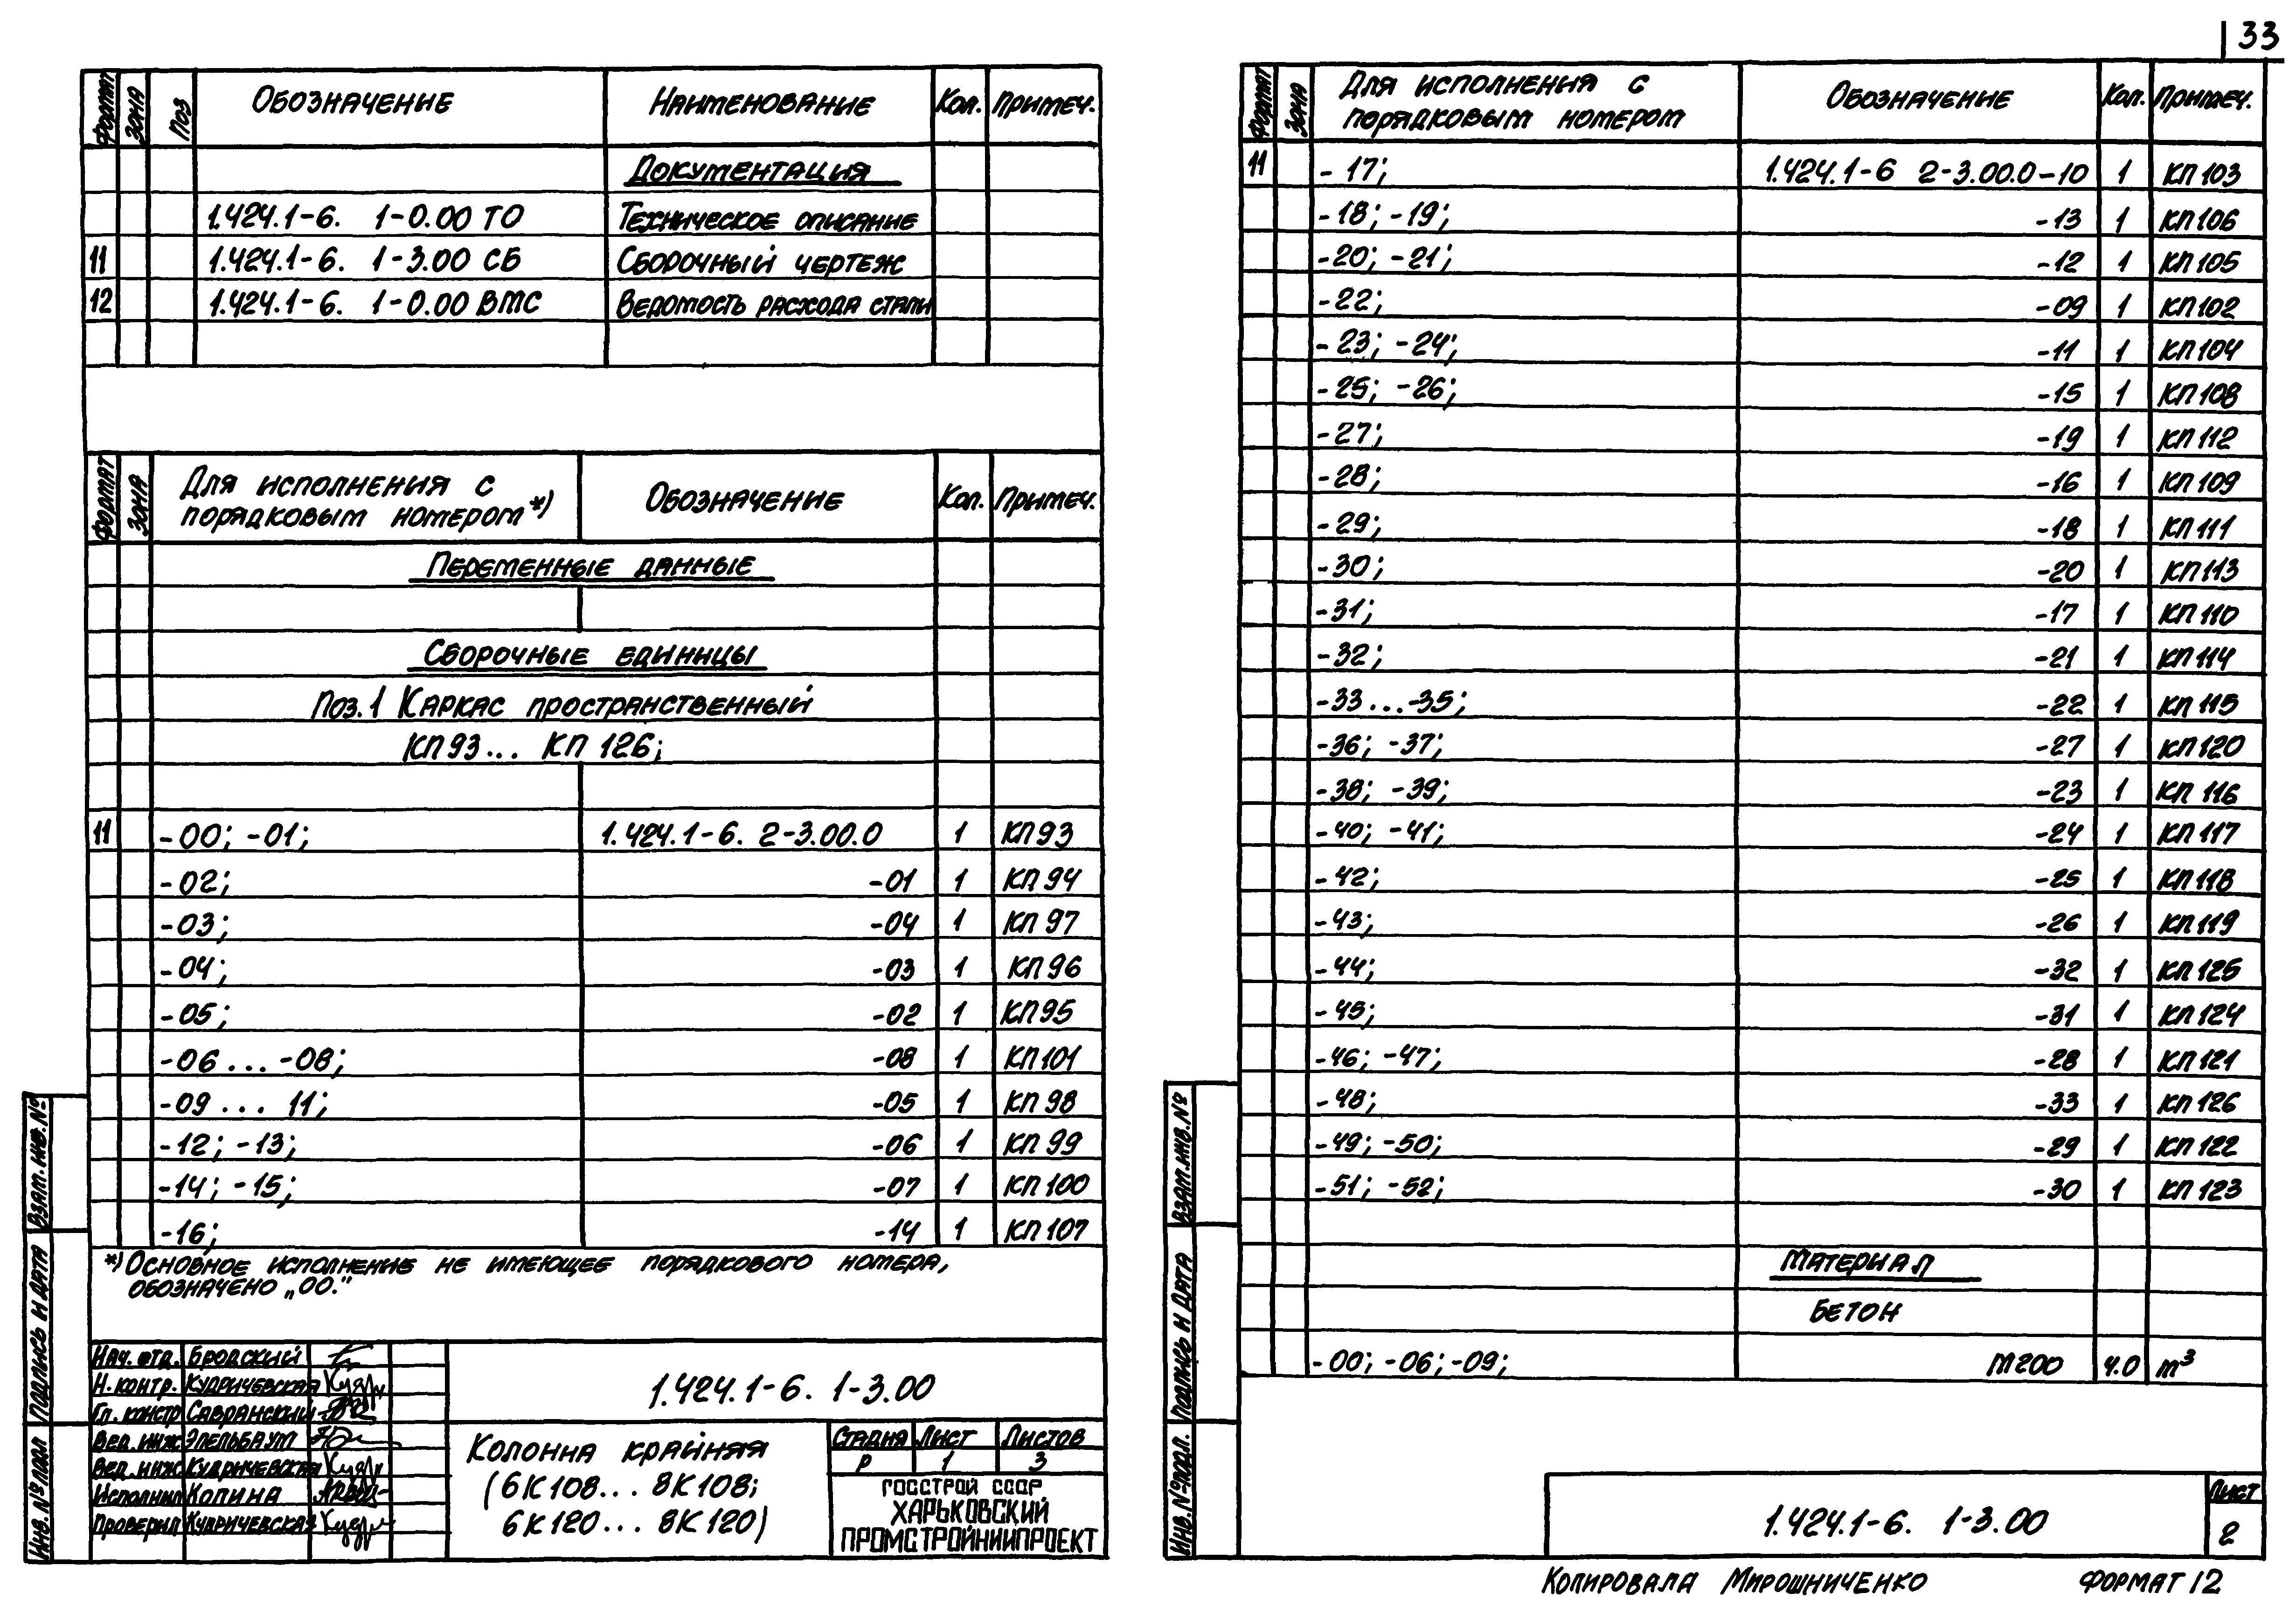 33
Формат Зона Поз Обозначение Наименование Кол. Примеч.
Документация
1.424.1-6. 1-0.00 ТО Техническое описание
11 1.424.1-6. 1-3.00 СБ Сборочный чертеж
12 1.424.1-6. 1-0.00 ВМС Ведомость расхода стали
Формат Зона Для исполнения с порядковым номером*) Обозначение Кол. Примеч.
Переменные данные
Сборочные единицы
Поз.1 Каркас пространственный
КП93... КП 126;
11 -00; -01; 1.424.1-6. 2-3.00.0 1 КП93
-02; -01 1 КП94
-03; -04 1 КП97
-04; -03 1 КП96
-05; -02 1 КП95
-06...-08; -08 1 КП101
-09... 11; -05 1 КП98
-12; -13; -06 1 КП99
-14; -15; -07 1 КП100
-16; -14 1 КП107
*) Основное исполнение не имеющее порядкового номера,
обозначено „00."
Взам. инв. №
Подпись и дата
Инв. № подл
Нач. отд. Бродский
Н. контр. Кудричевская
Гл. констр Савранский
Вед. инж Эпельбаум
Вед. инж Кудричевская
Исполнил Копина
Проверил Кудричевская
1.424.1-6. 1-3.00
Колонна крайняя
(6К108... 8К108;
6К120... 8К120)
Стадия Лист Листов
Р 1 3
Госстрой СССР
ХАРЬКОВСКИЙ
ПРОМСТРОЙНИИПРОЕКТ
Формат Зона Для исполнения с порядковым номером Обозначение Кол. Примеч.
11 -17; 1.424.1-6 2-3.00.0-10 1 КП103
-18; -19; -13 1 КП106
-20; -21; -12 1 КП105
-22; -09 1 КП102
-23; -24; -11 1 КП104
-25; -26; -15 1 КП108
-27; -19 1 КП112
-28; -16 1 КП109
-29; -18 1 КП111
-30; -20 1 КП113
-31; -17 1 КП110
-32; -21 1 КП114
-33...-35; -22 1 КП115
-36; -37; -27 1 КП120
-38; -39; -23 1 КП116
-40; -41; -24 1 КП117
-42; -25 1 КП118
-43; -26 1 КП119
-44; -32 1 КП125
-45; -31 1 КП124
-46; -47; -28 1 КП121
-48; -33 1 КП126
-49; -50; -29 1 КП122
-51; -52; -30 1 КП123
Материал
Бетон
-00; -06; -09; М200 4.0 м³
Взам. инв. №
Подпись и дата
Инв. № подл.
1.424.1-6. 1-3.00
Лист
2
Копировала Мирошниченко Формат 12